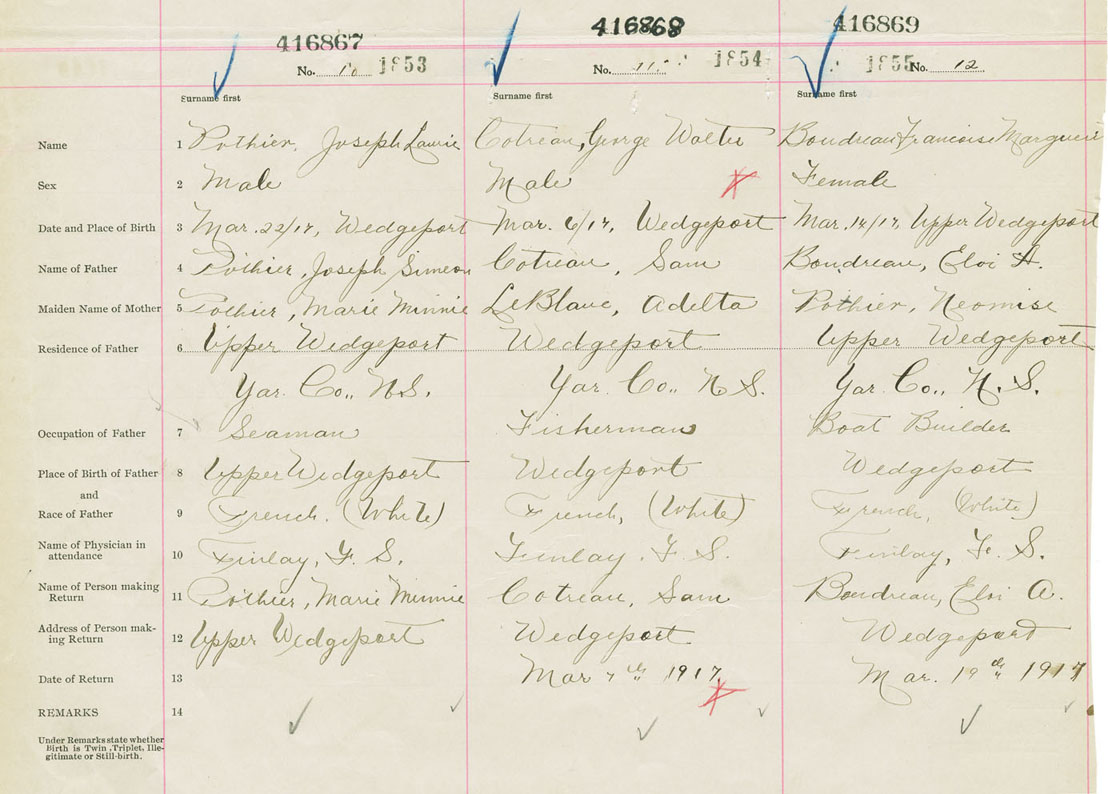 416867 416868 416869
No. 10 1853 No. 11 1854 1855 No. 12
Surname first Surname first Surname first
Name 1 Pothier, Joseph Laurie Cotreau, George Walter Boudreau Francoise Margueri
Sex 2 Male Male Female
Date and Place of Birth 3 Mar. 22/17, Wedgeport Mar. 6/17, Wedgeport Mar. 14/17, Upper Wedgeport
Name of Father 4 Pothier, Joseph Simeon Cotreau, Sam Boudreau, Eloi A.
Maiden Name of Mother 5 Pothier, Marie Minnie LeBlanc, Adelta Pothier, Neomise
Residence of Father 6 Upper Wedgeport Wedgeport Upper Wedgeport
Yar. Co., N.S. Yar. Co., N S. Yar. Co., N. S.
Occupation of Father 7 Seaman Fisherman Boat Builder
Place of Birth of Father 8 Upper Wedgeport Wedgeport Wedgeport
and
Race of Father 9 French. (White) French, (White) French, (White)
Name of Physician in
attendance 10 Finlay, F. S. Finlay, F. S. Finlay, F. S.
Name of Person making
Return 11 Pothier, Marie Minnie Cotreau, Sam Boudreau, Eloi A.
Address of Person mak-
ing Return 12 Upper Wedgeport Wedgeport Wedgeport
Date of Return 13 Mar 7th 1917. Mar. 19th 1917
REMARKS 14
Under Remarks state whether
Birth is Twin, Triplet, Ille-
gitimate or Still-birth.